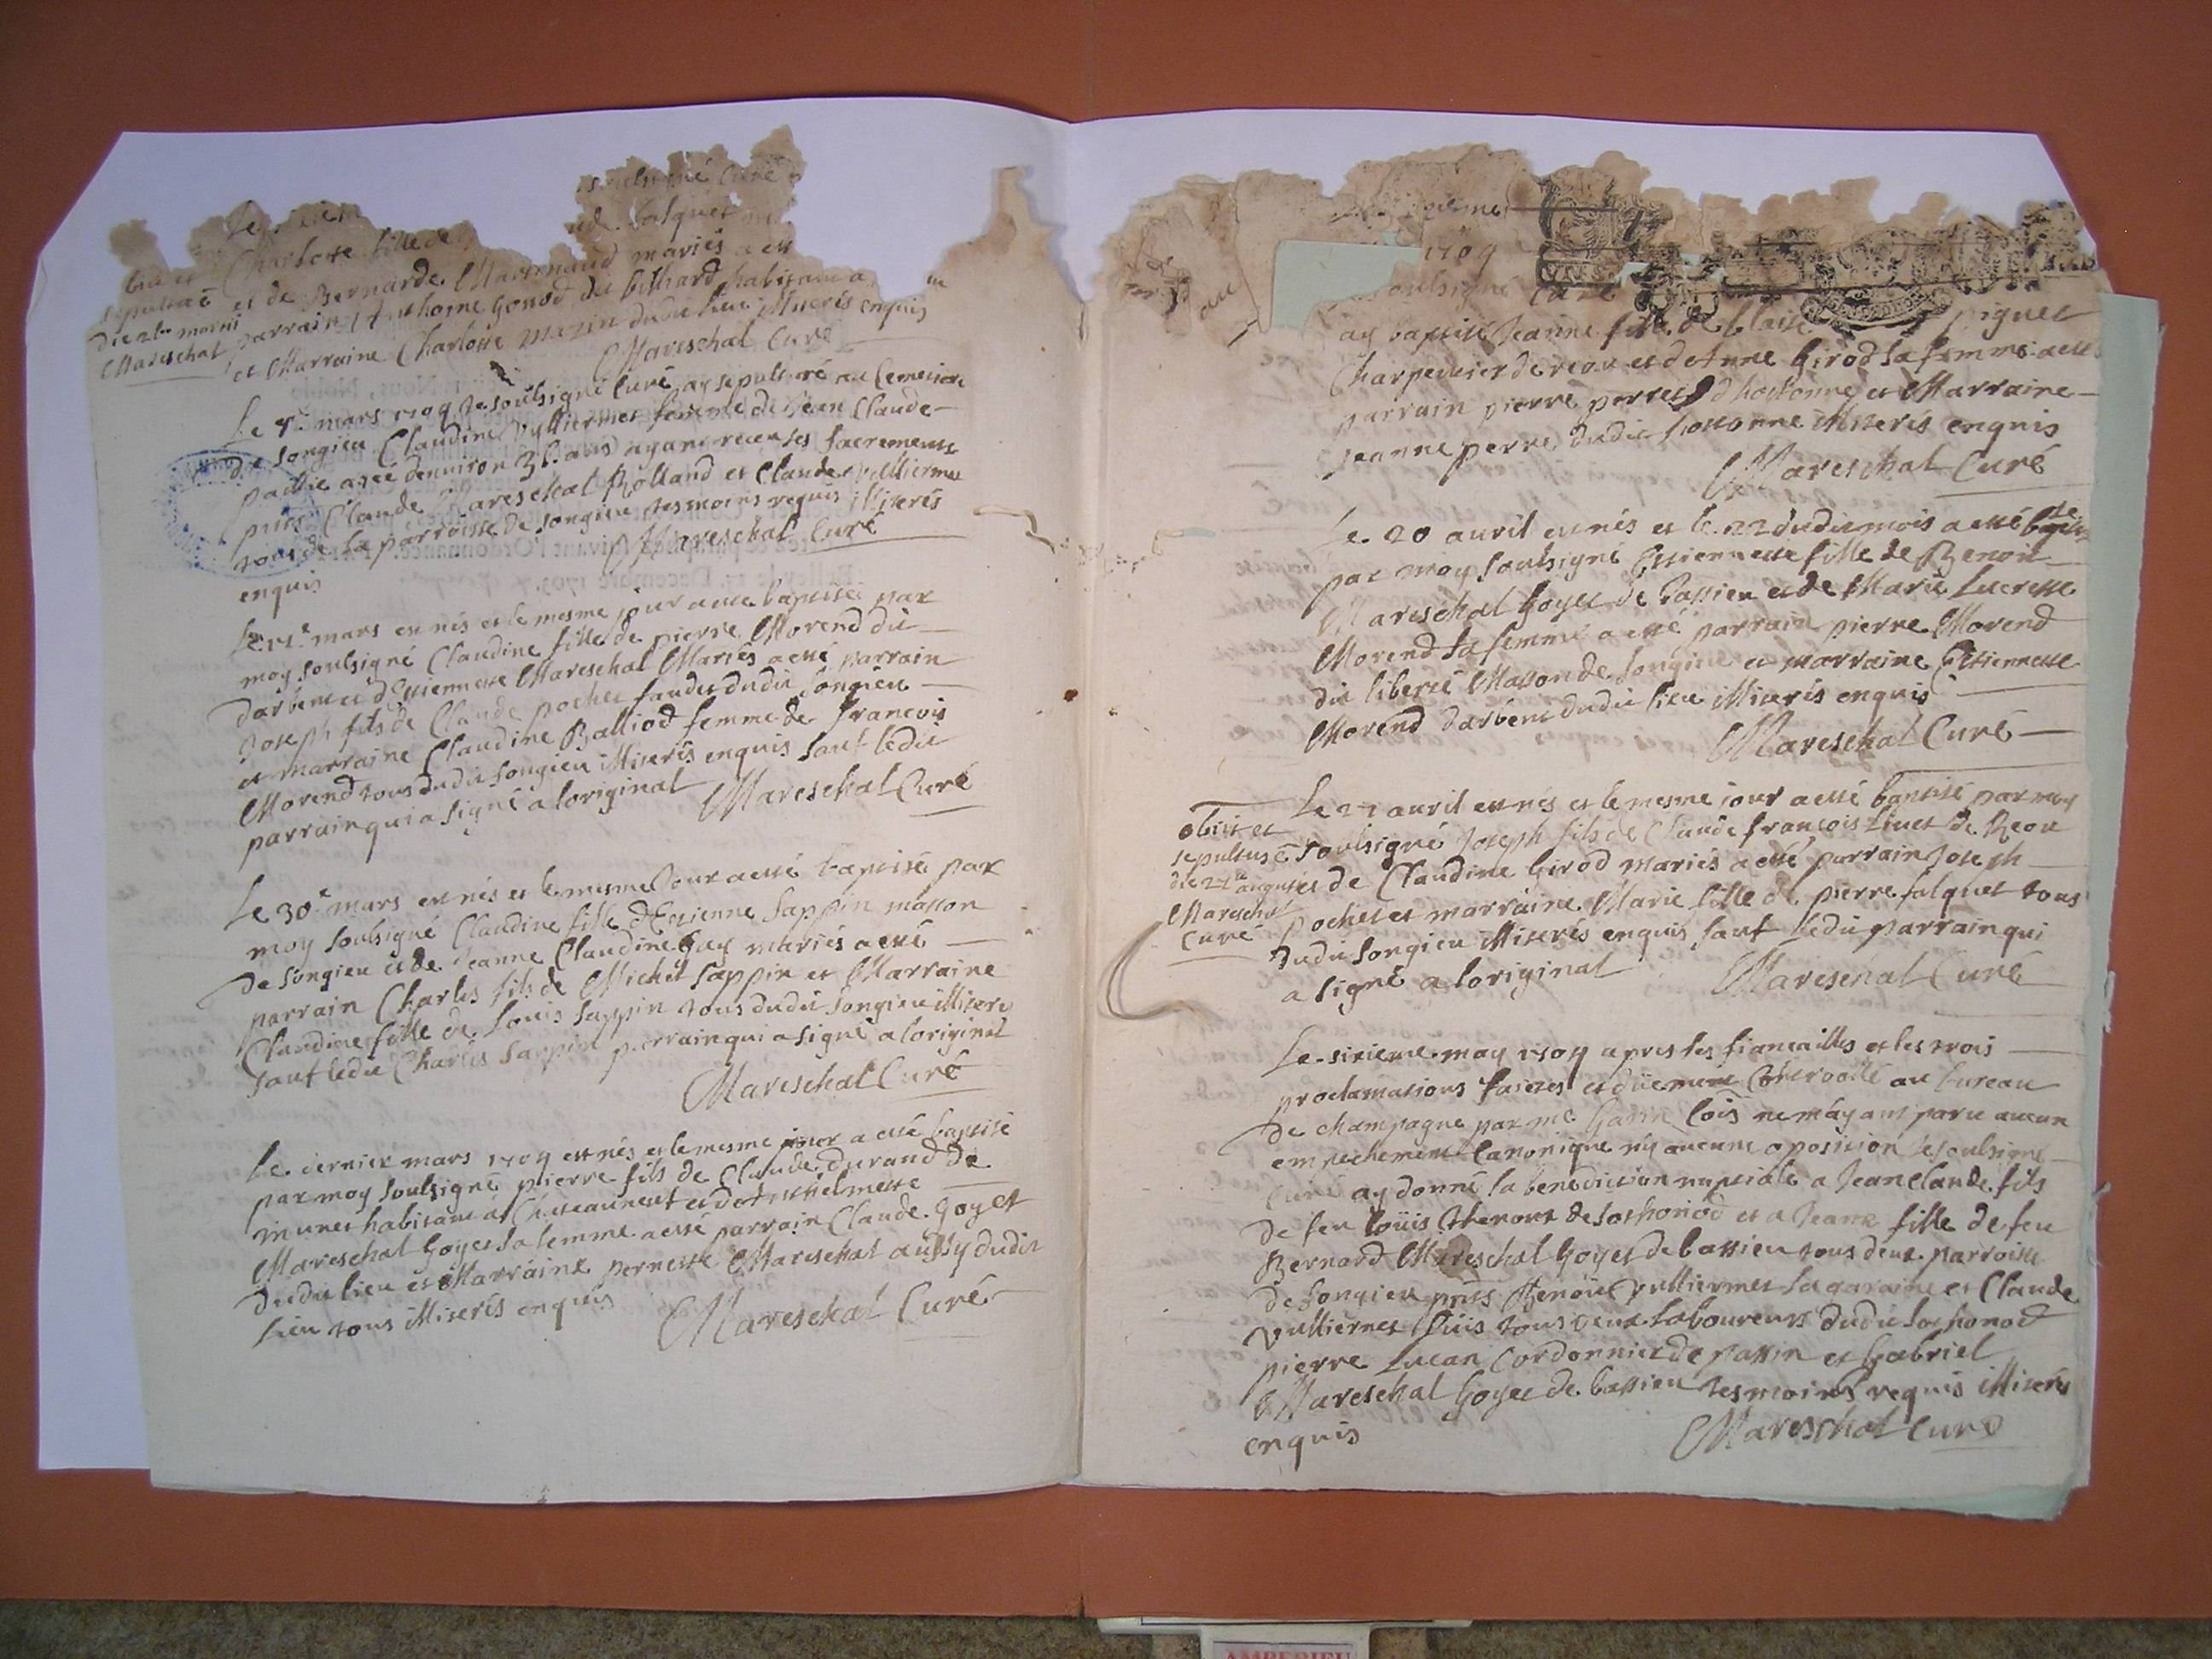 soubsigné Curé
falquet
Charlotte fille de
et de Bernarde Martinand mariés a est
parrain Anthoine Gonod du billiard habitant a
et Marraine Charlotte Mezin dudit lieu Illiterés enquis
Mareschal Curé
obiit et
sepultraē
die 2ta martii
Mareschal
Le mars 1709 Je soubsigné Curé ay sepulturé au Cemetiere
de songieu Claudine Vulliermet femme de Jean Claude
paillie agée denuiron 36 ans ayant receu ses sacrements
pnts Claude Mareschal Rolland et Claude Vulliermet
tous de la parroisse de songieu tesmoins requis Illiterés
enquis
Mareschal Curé
Le mars est nés et le mesme jour a esté baptisé par
moy soubsigné Claudine fille de pierre Morend dit
darbent et d'Estiennette Mareschal Mariés a esté parrain
Joseph fils de Claude pochet faudes dudit songieu
et marraine Claudine Balliod femme de francois
Morend tous dudit songieu Illiterés enquis sauf ledit
parrain qui a signé a loriginal
Mareschal Curé
Le 30e mars est nés et le mesme Jour a esté baptisé par
moy soubsigné Claudine fille d'Etienne sappin masson
de songieu et de Jeanne Claudine Guy mariés a esté
parrain Charles fils de Michel sappin et Marraine
Claudine fille de Louis sappin tous dudit songieu illiteres
sauf ledit Charles sappin parrain qui a signé a loriginal
Mareschal Curé
Le dernier mars 1709 est nés et le mesme jour a esté baptisé
par moy soubsigné pierre fils de Claude durand de
munet habitant a Chasteauneuf et d'Anthelmette
Mareschal Goyet sa femme a esté parrain Claude Goyet
dudit lieu et Marraine pernette Mareschal aussy dudit
lieu tous Illiterés enquis
Mareschal Curé
1709
soubsigné Curé
ay baptisé Jeanne fille de blaise piguet
Charpentier de reou et d'Anne Girod sa femme a esté
parrain pierre perret d'hostonne et Marraine
Jeanne perret dudit hostonne Illiterés enquis
Mareschal Curé
Le 20 auril est nés et le 22 dudit mois a esté baptisée
par moy soubsigné Estiennette fille de Benoit
Mareschal Goyet de bassieu et de Marie Lucresse
Morend sa femme a esté parrain pierre Morend
dit liberté Masson de songieu et marraine Estiennette
Morend darbent dudit lieu Illiterés enquis
Mareschal Curé
Le 27 auril est nés et le mesme jour a esté baptisé par moy
soubsigné Joseph fils de Claude françois Liuet de Reou
et de Claudine Girod mariés a esté parrain Joseph
pochet et marraine Marie fille de pierre falquet tous
dudit songieu Illiterés enquis sauf ledit parrain qui
a signé a loriginal
Mareschal Curé
obiit et
sepultusē
die 27ta augusti
Mareschal
Curé
Le sixieme may 1709 apres les fiancailles et les trois
proclamations faictes et düement Controollé au bureau
de champagne par me ne m'ayant paru aucun
empechement Canonique ny aucune oposition Je soubsigné
Curé ay donné la benediction nuptiale a Jean Claude fils
de feu Loüis Thenout de sothonod et a Jeane fille de feu
Bernard Mareschal Goyet de bassieu tous deux parroisse
de songieu pnts Benoit Vulliermet la garaine et Claude
Vulliermet Puis tous deux laboureurs dudit sothonod
pierre Lucan Cordonnier de passin et Gabriel
Mareschal Goyet de bassieu tesmoins requis Illiterés
enquis
Mareschal Curé
AMBERIEU